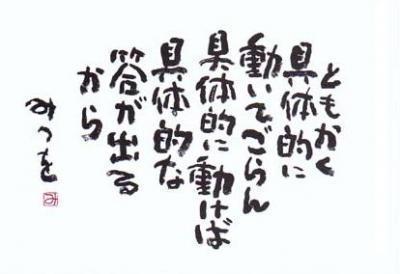 ともかく
具体的に
動いてごらん
具体的に動けば
具体的な
答が出る
から
みつを
み